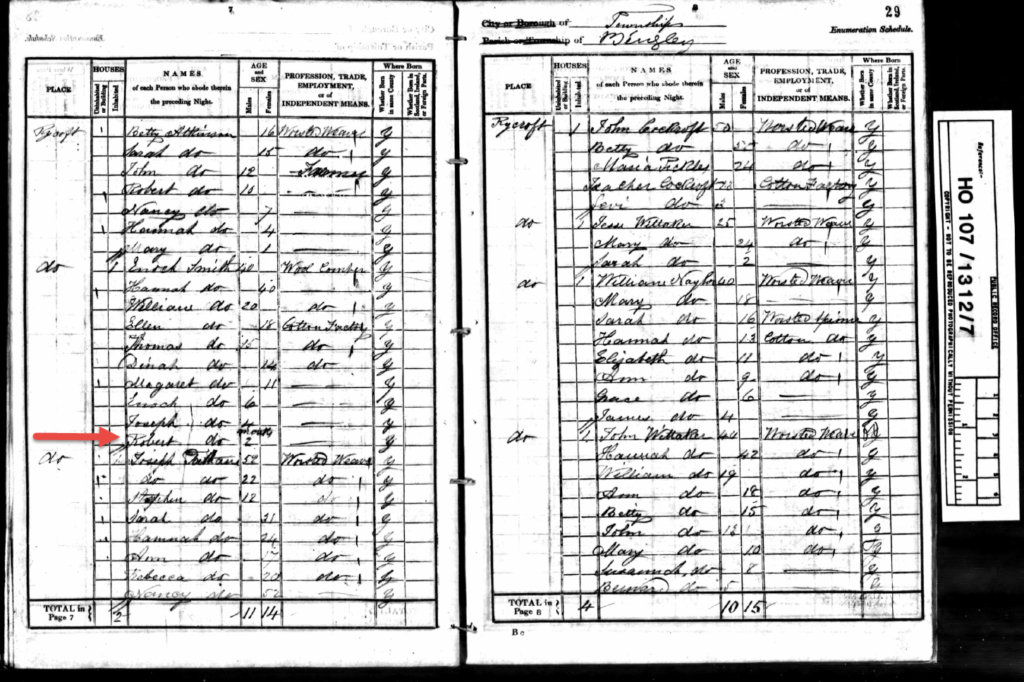 7
HOUSES
AGE and SEX
Where Born
PLACE
Uninhabited or Building
Inhabited
NAMES
of each Person who abode therein the preceding Night.
Males
Females
PROFESSION, TRADE, EMPLOYMENT, or of INDEPENDENT MEANS.
Whether Born in same County
Whether Born in Scotland, Ireland, or Foreign Parts.
Rycroft 1 Betty Atkinson 16 Worsted Weaver y
Sarah do 15 do y
John do 12 y
Robert do 10 y
Nancy do 7 — y
Hannah do 4 — y
Mary do 1 — y
do 1 Enoch Smith 40 Wool Comber y
Hannah do 40 y
William do 20 do y
Ellen do 18 Cotton Factory y
Thomas do 15 do y
Dinah do 14 do y
Margaret do 11 — y
Enoch do 6 — y
Joseph do 4 — y
Robert do 2 month — y
do 1 Joseph 52 Worsted Weaver y
do do 22 do y
Stephen do 12 do y
Sarah do 21 do y
Hannah do 24 do y
Ann do 17 do y
Rebecca do 20 do y
Nancy do 52 — y
TOTAL in Page 7 2 11 14
8
29
City or Borough of Township
Parish or Township of Bingley
Enumeration Schedule.
HOUSES
AGE and SEX
Where Born
PLACE
Uninhabited or Building
Inhabited
NAMES
of each Person who abode therein the preceding Night.
Males
Females
PROFESSION, TRADE, EMPLOYMENT, or of INDEPENDENT MEANS.
Whether Born in same County
Whether Born in Scotland, Ireland, or Foreign Parts.
Rycroft 1 John Cockroft 50 Worsted Weaver y
Betty do 55 do y
Maria Pickles 24 do y
Cockroft 20 Cotton Factory y
Levi do 2 — y
do 1 Jesse Wittaker 25 Worsted Weaver y
Mary do 24 do y
Sarah do 2 — y
do 1 William Naylor 40 Worsted Weaver y
Mary do 18 — y
Sarah do 16 Worsted Spinner y
Hannah do 13 Cotton do y
Elizabeth do 11 do y
Ann do 9 do y
Grace do 6 — y
James do 4 — y
do 1 John Wittaker 44 Worsted Weaver
Hannah do 42 do y
William do 19 do y
Ann do 18 do y
Betty do 15 do y
John do 12 do y
Mary do 10 do y
Susannah do 8 — y
Bernard do 5 —
TOTAL in Page 8 4 10 15
B e
Reference:-
HO 107 / 1312/7
PUBLIC RECORD OFFICE
COPYRIGHT - NOT TO BE REPRODUCED PHOTOGRAPHICALLY WITHOUT PERMISSION